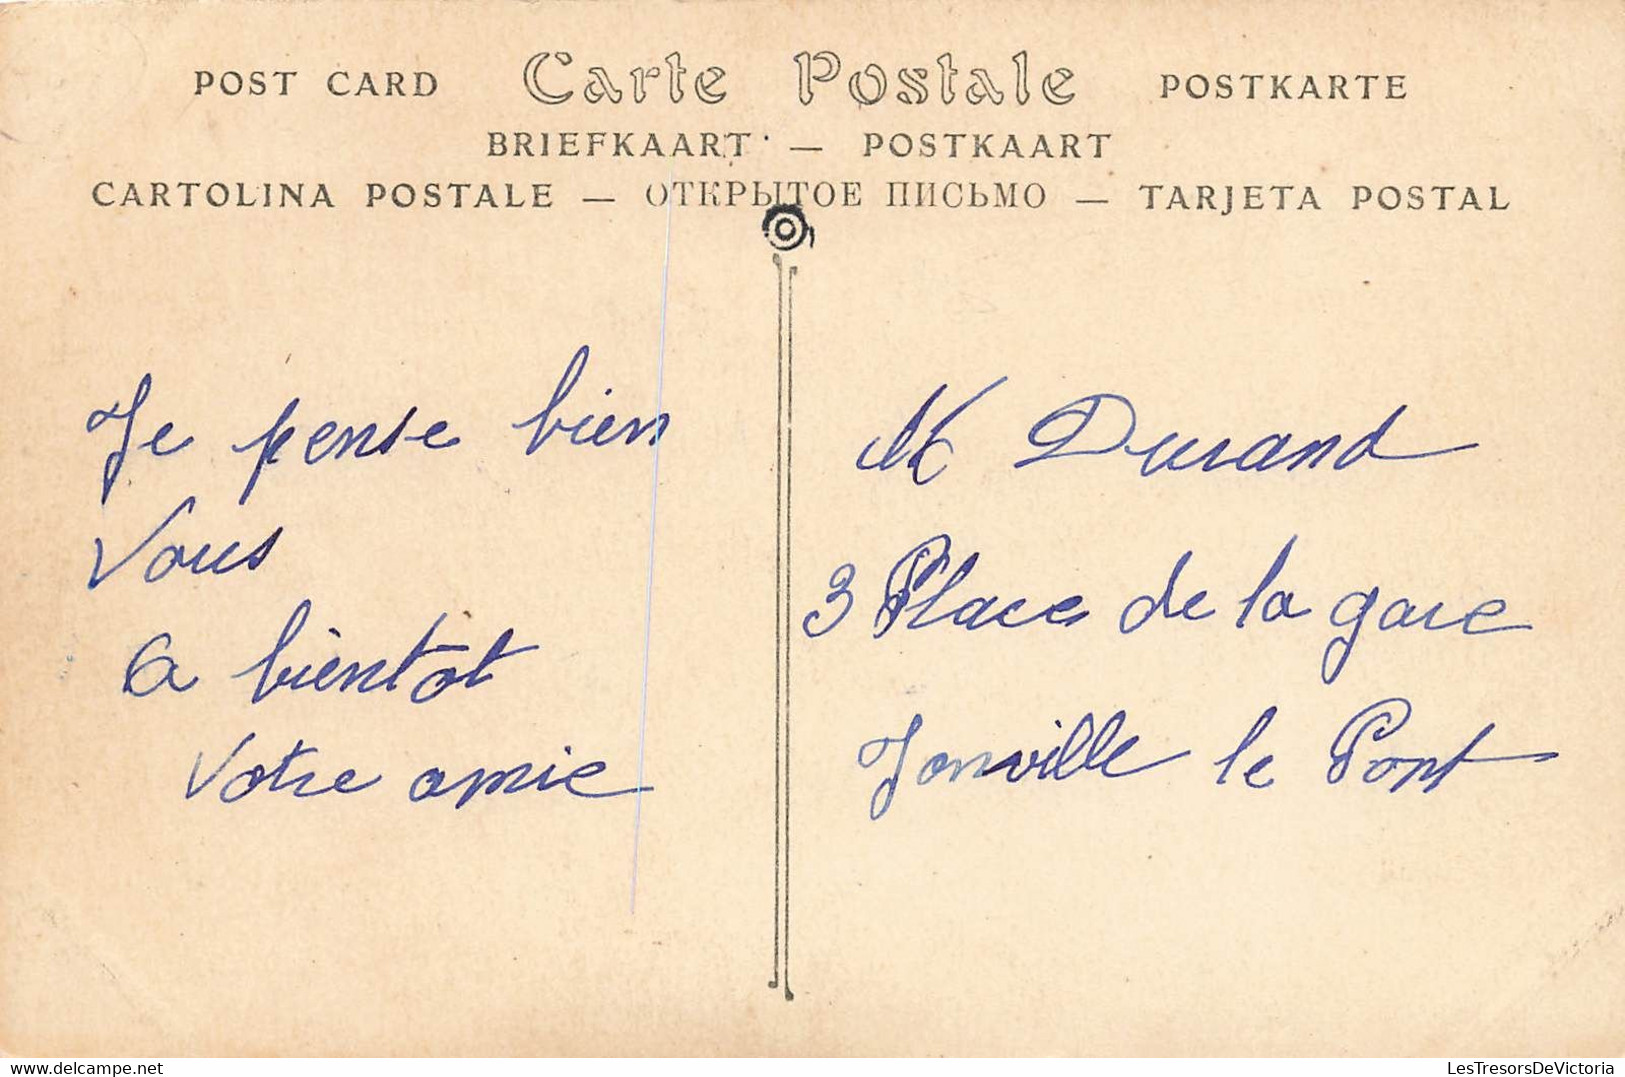 POST CARD Carte Postale POSTKARTE
BRIEFKAART — POSTKAART
CARTOLINA POSTALE — ОТКРЫТОЕ ПИСЬМО — TARJETA POSTAL
Je pense bien
Vous
A bientot
Votre amie
M Durand
3 Place de la gare
Jonville le Pont
LesTresorsDeVictoria